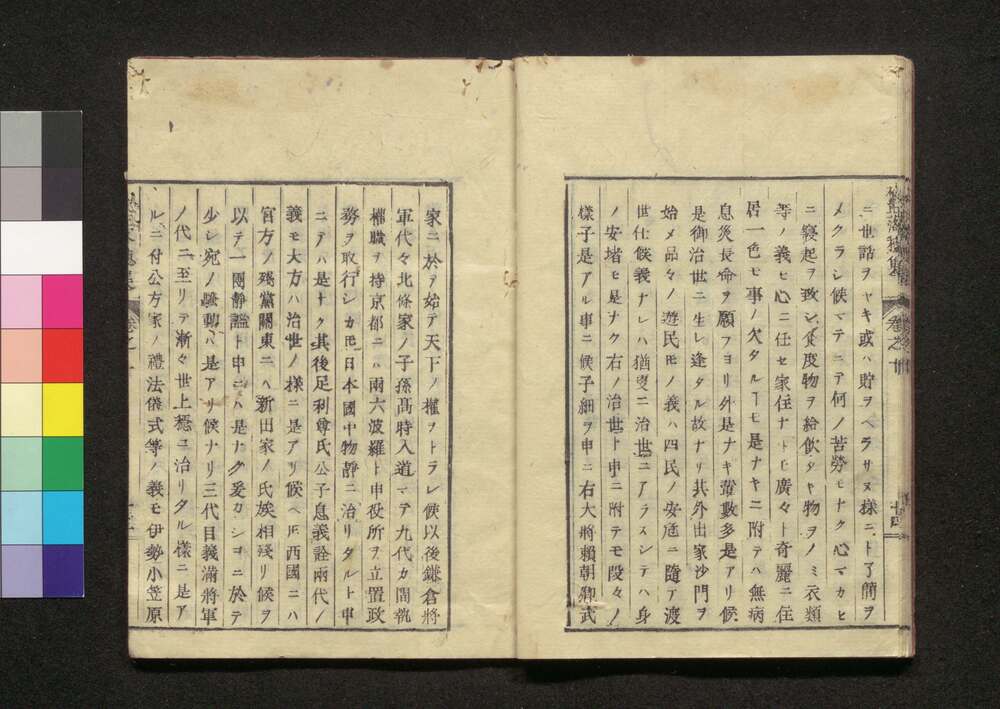 ニ世話ヲヤキ或ハ貯ヲヘラサヌ様ニト了簡ヲ
メクラシ候マテニテ何ノ苦勞モナク心マカヒ
ニ寝起ヲ致シ食度物ヲ給飲タキ物ヲノミ衣類
等ノ義モ心ニ任セ家住ナトモ廣々ト奇麗ニ住
居一色モ事ノ欠タルヿモ是ナキニ附テハ無病
息災長命ヲ願フヨリ外是ナキ輩數多是アリ候
是御治世ニ生レ逢タル故ナリ其外出家沙門ヲ
始メ品々ノ遊民モノ義ハ四民ノ安危ニ隨ア渡
世仕候義ナレハ猶更ニ治世ニアラスシテハ身
ノ安堵モ是ナク右ノ治世ト申ニ附テモ段々ノ
樣子是アル事ニ候子細ヲ申ニ右大將賴朝卿武
家ニ於ヲ始テ天下ノ權ヲトラレ候以後鎌倉將
軍代々北條家ノ子孫髙時入道マテ九代カ間執
權職ヲ持京都ニハ兩六波羅ト申役所ヲ立置政
務ヲ取行シカ𪜈日本國中物靜ニ治リタルト申
ニテハ是ナク其後足利尊氏公子息義詮兩代ノ
義モ大方ハ治世ノ様ニ是アリ候ヘ𪜈西國ニハ
宮方ノ殘黨關東ニハ新田家ノ氏族相殘リ候ヲ
以テ一圓靜謐ト申ニハ是ナク爰カシコニ於テ
少シ宛ノ騷動ハ是アリ候ナリ三代目義滿將軍
ノ代ニ至リテ漸々世上穩ニ治リタル様ニ是ア
ルニ付公方家ノ禮法儀式等ノ義モ伊勢小笠原